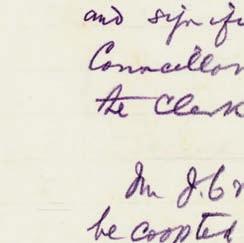 and signifi
Councillor
the Clerk
Mr J. Cr
be coopted